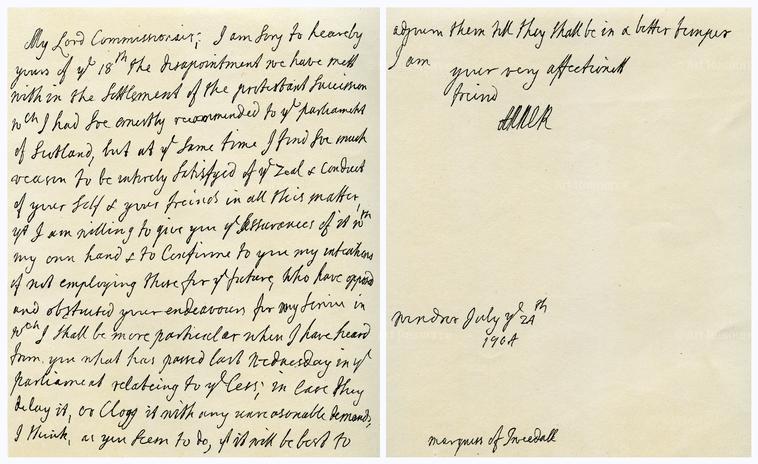 My Lord Commissionair; I am sory to hear by
yours of yᵉ 18ᵗʰ the disapointment we have mett
with in the Settlement of the protestant Succession
wᶜʰ I had soe ernestly recommended to yᵉ parliament
of Scotland, but at yᵉ same time I find soe much
reason to be intirely satisfyed of yᵉ Zeal & Conduct
of your self & your freinds in all this matter,
yᵗ I am willing to give you yᵉ assurances of it wᵗʰ
my own hand & to Confirme to you my intentions
of not employing those for yᵉ future, who have opposd
and obstructed your endeavours for my service in
wᶜʰ I shall be more particular when I have heard
from you what has passed last Wednesday in yᵉ
parliament relateing to yᵉ Cess; in case they
delay it, or Clogg it with any unreasonable demands,
I think, as you seem to do, yᵗ it will be best to
adjurn them till they shall be in a better temper
I am
your very affectionett
freind
ANNE R
Windsor July yᵉ 24ᵗʰ
1704
marquess of Tweedall